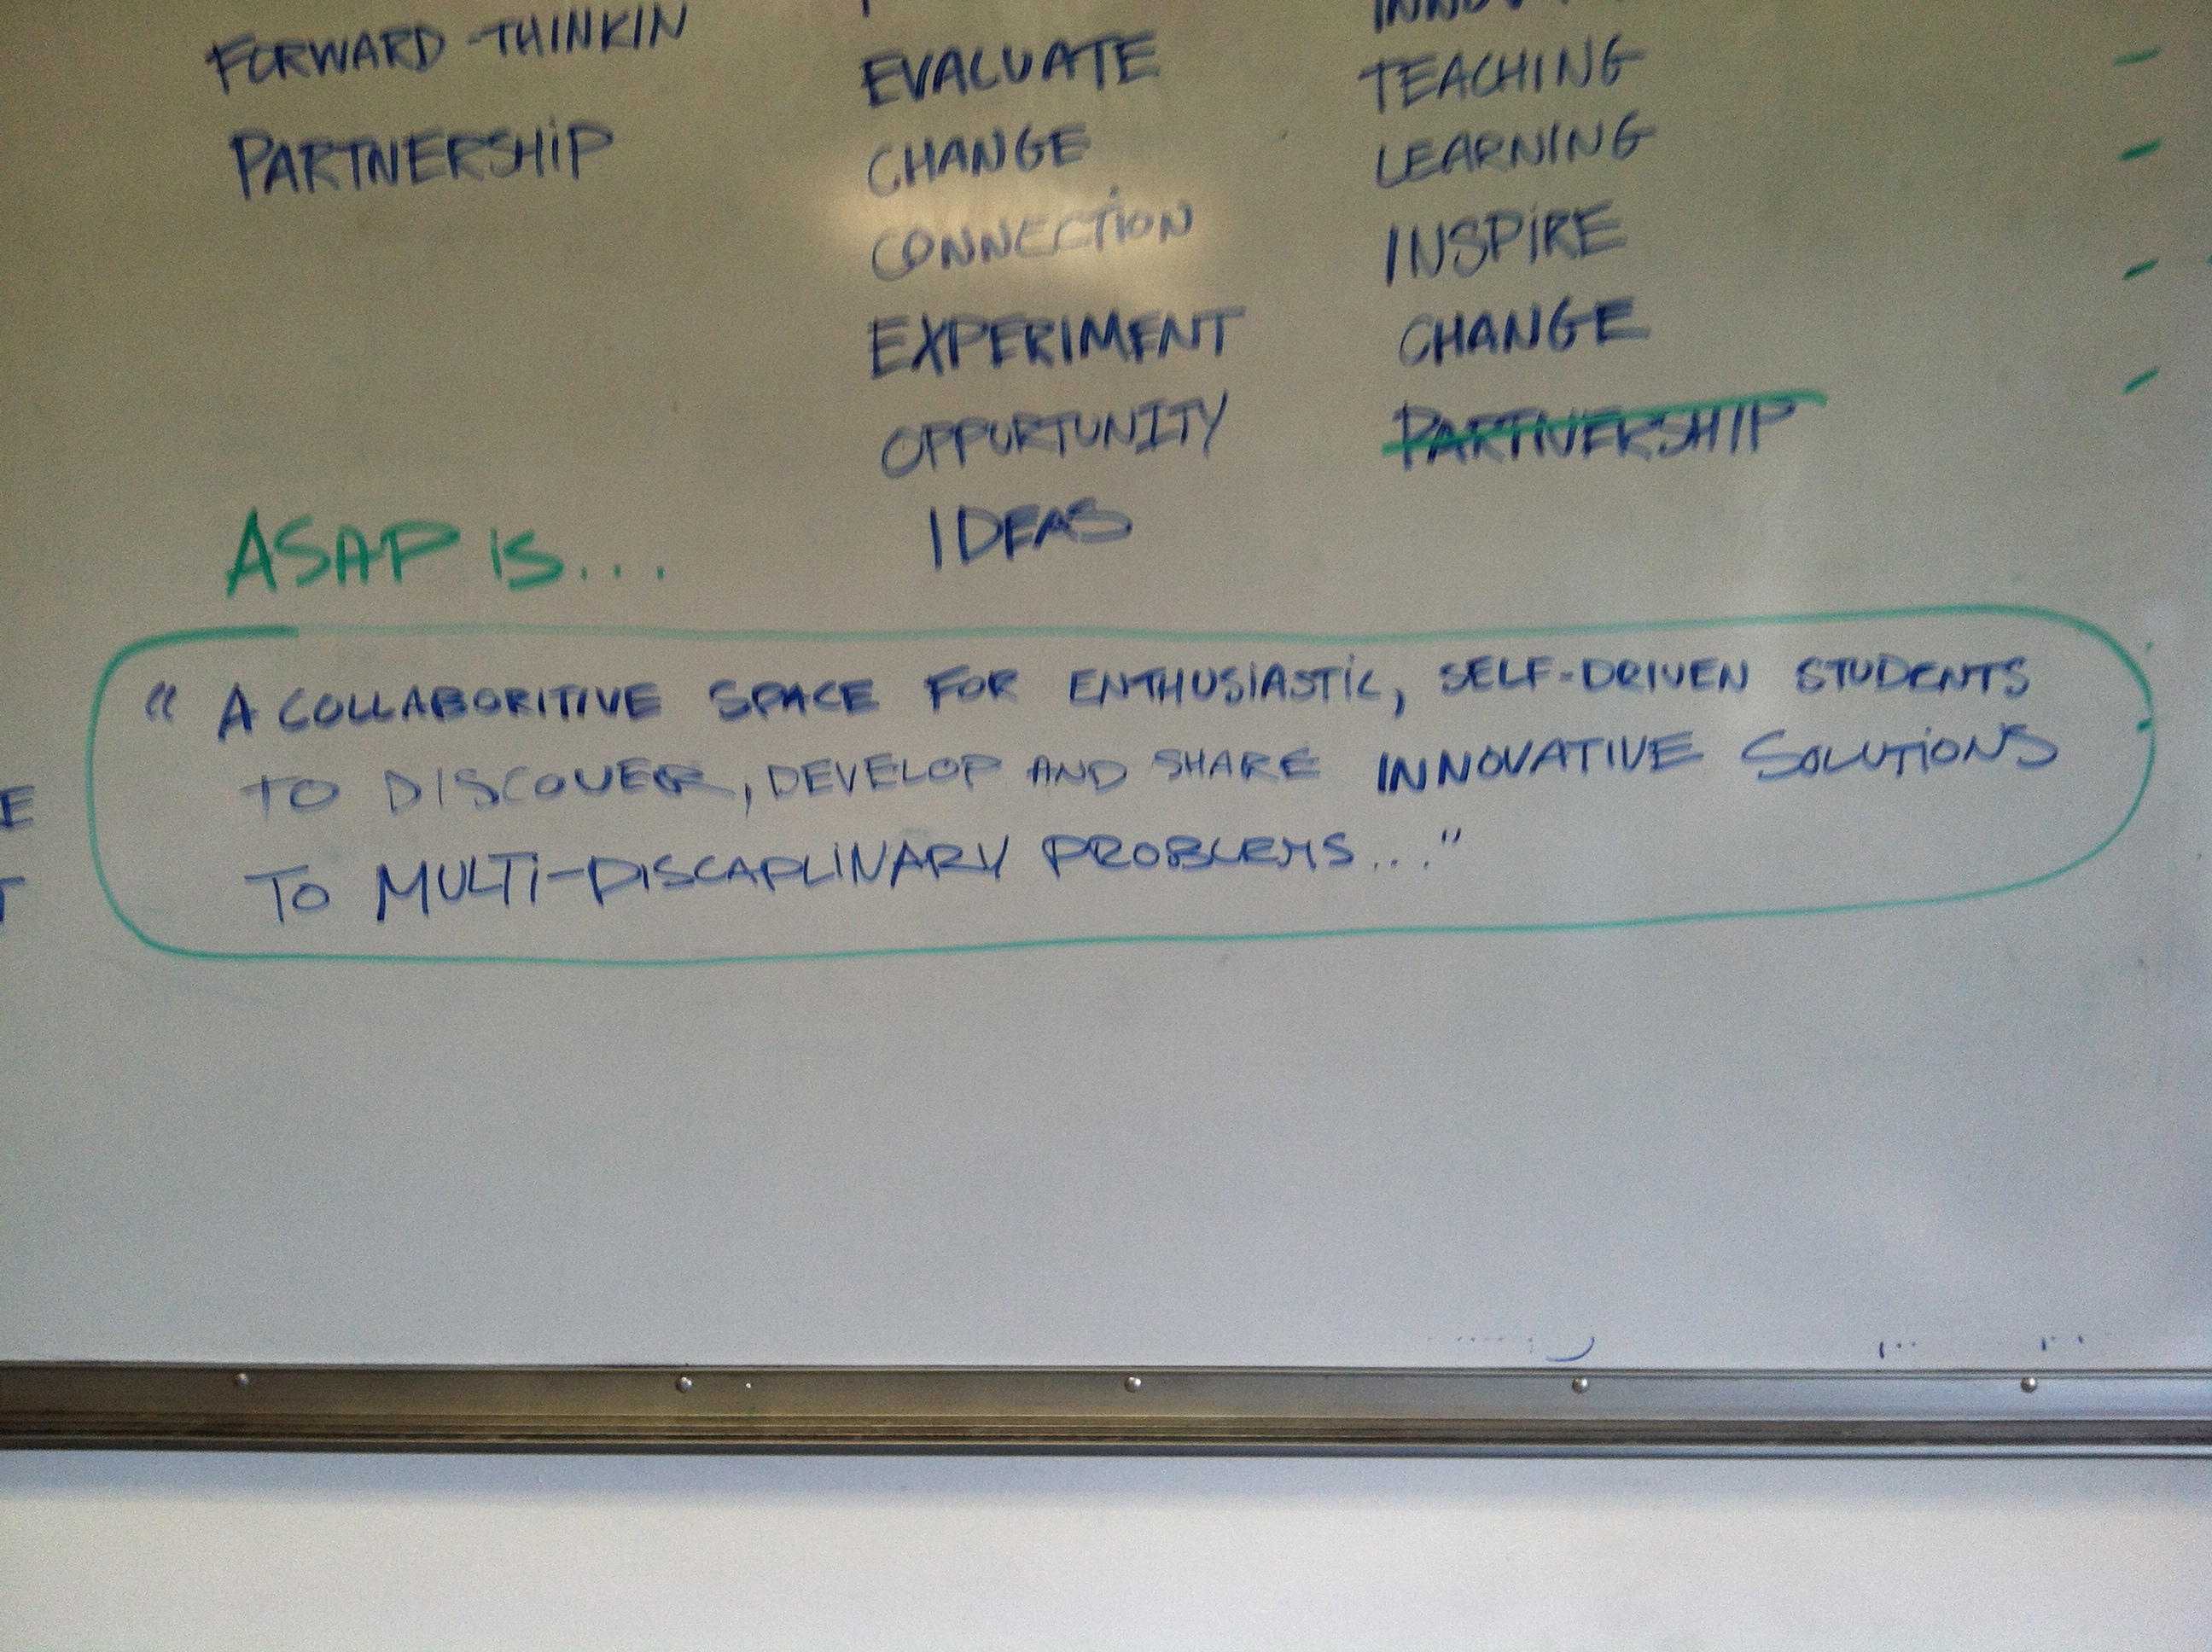 FORWARD-THINKIN
PARTNERSHIP
EVALUATE
CHANGE
CONNECTION
EXPERIMENT
OPPORTUNITY
IDEAS
TEACHING
LEARNING
INSPIRE
CHANGE
PARTNERSHIP
ASAP is...
“A COLLABORITIVE SPACE FOR ENTHUSIASTIC, SELF-DRIVEN STUDENTS
TO DISCOVER, DEVELOP AND SHARE INNOVATIVE SOLUTIONS
TO MULTI-DISCAPLINARY PROBLEMS..."